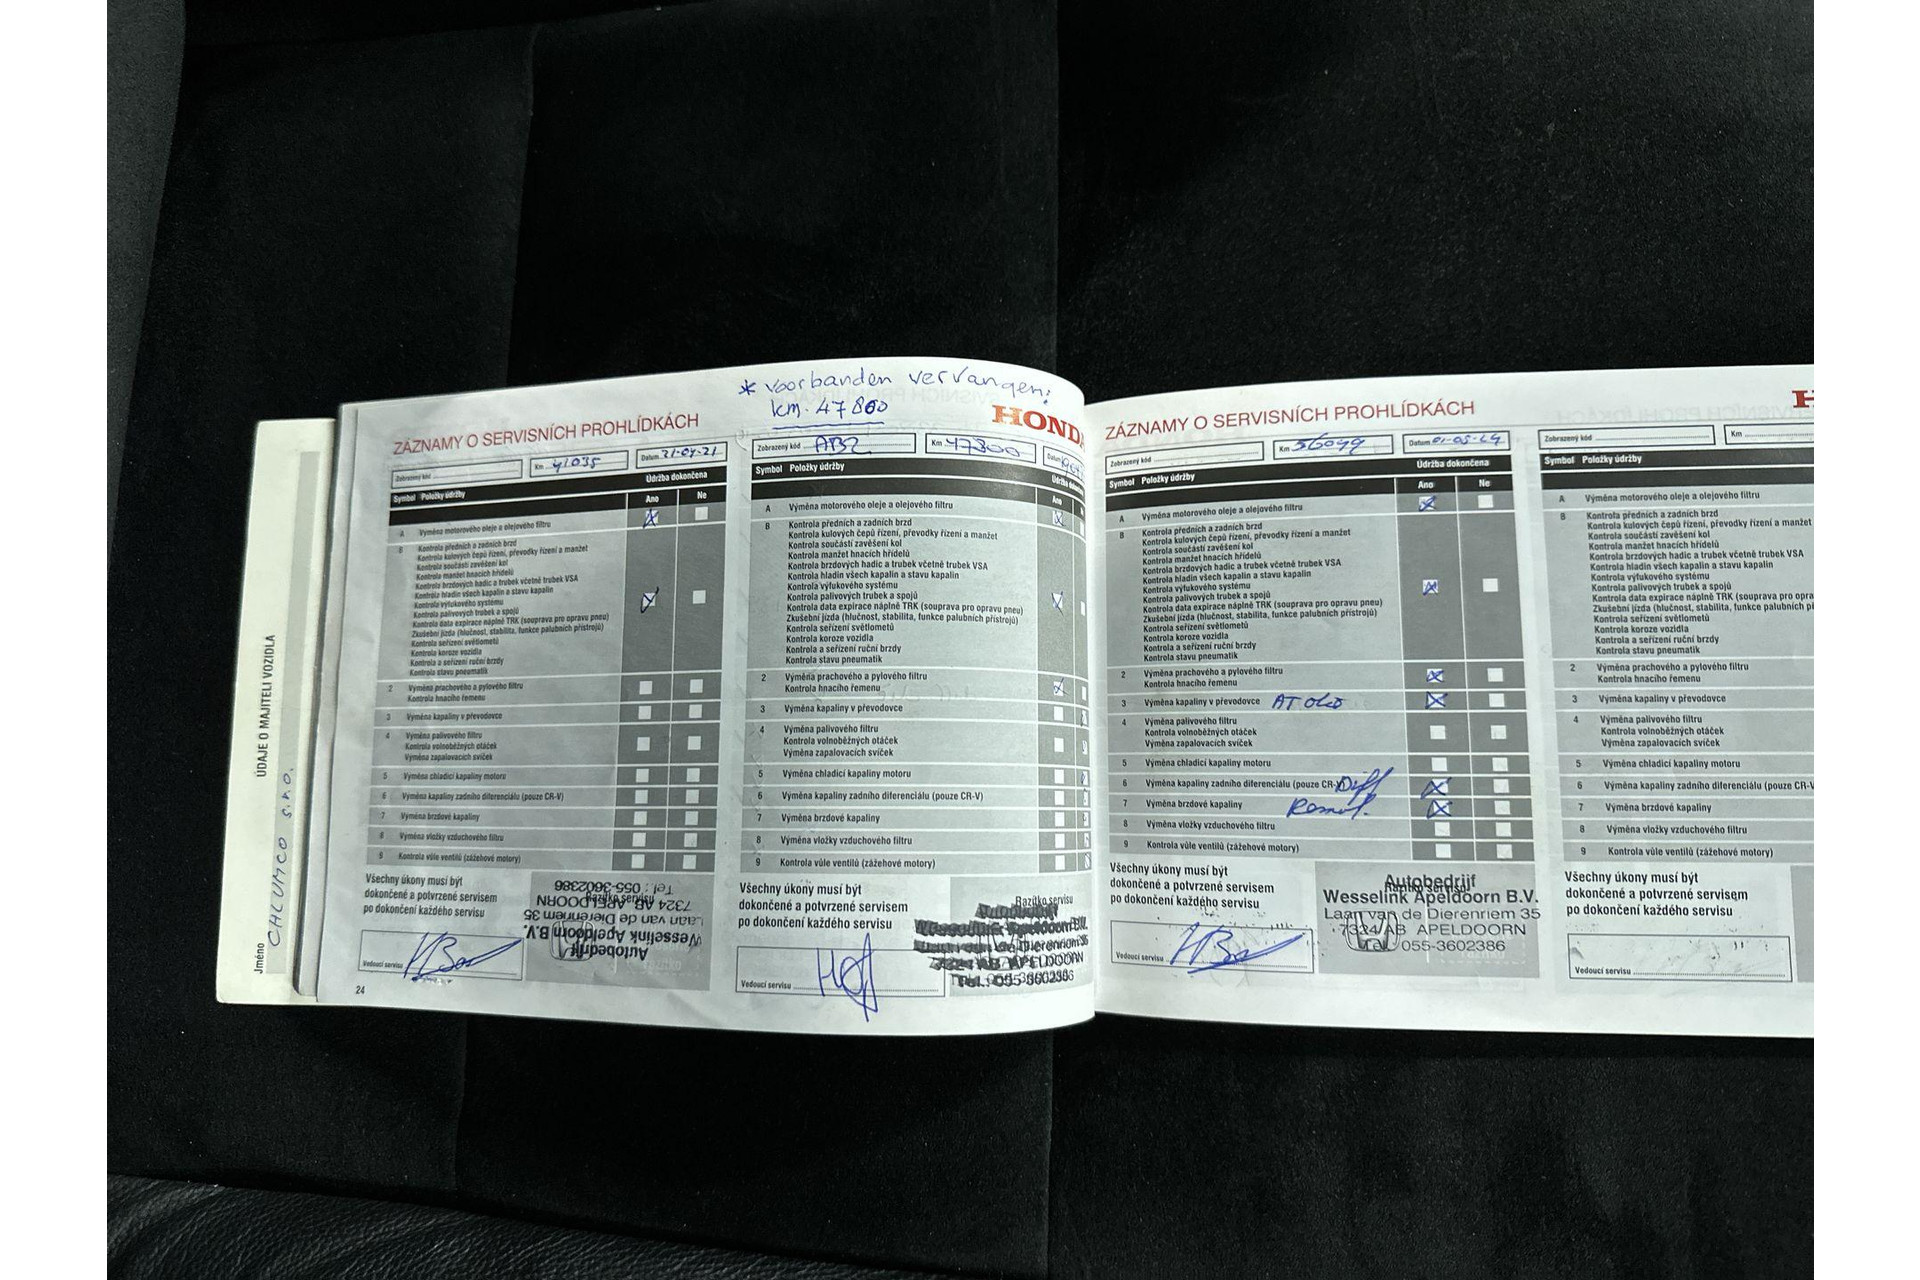 ÚDAJE O MAJITELI VOZIDLA
Jméno CHLUMCO s.r.o.
* Voorbanden vervangen:
km. 47800
HONDA
ZÁZNAMY O SERVISNÍCH PROHLÍDKÁCH
Zobrazený kód
Km 41035
Datum 21-04-21
Údržba dokončena
Symbol Položky údržby
Ano Ne
A Výměna motorového oleje a olejového filtru
B Kontrola předních a zadních brzd
Kontrola kulových čepů řízení, převodky řízení a manžet
Kontrola součástí zavěšení kol
Kontrola manžet hnacích hřídelů
Kontrola brzdových hadic a trubek včetně trubek VSA
Kontrola hladin všech kapalin a stavu kapalin
Kontrola výfukového systému
Kontrola palivových trubek a spojů
Kontrola data expirace náplně TRK (souprava pro opravu pneu)
Zkušební jízda (hlučnost, stabilita, funkce palubních přístrojů)
Kontrola seřízení světlometů
Kontrola koroze vozidla
Kontrola a seřízení ruční brzdy
Kontrola stavu pneumatik
2 Výměna prachového a pylového filtru
Kontrola hnacího řemenu
3 Výměna kapaliny v převodovce
4 Výměna palivového filtru
Kontrola volnoběžných otáček
Výměna zapalovacích svíček
5 Výměna chladicí kapaliny motoru
6 Výměna kapaliny zadního diferenciálu (pouze CR-V)
7 Výměna brzdové kapaliny
8 Výměna vložky vzduchového filtru
9 Kontrola vůle ventilů (zážehové motory)
Všechny úkony musí být
dokončené a potvrzené servisem
po dokončení každého servisu
Vedoucí servisu
Razítko servisu
Autobedrijf
Wesselink Apeldoorn B.V.
Laan van de Dierenriem 35
7324 AB APELDOORN
Tel.: 055-3602386
24
Zobrazený kód AB2
Km 47800
Datum
Symbol Položky údržby
Ano
A Výměna motorového oleje a olejového filtru
B Kontrola předních a zadních brzd
Kontrola kulových čepů řízení, převodky řízení a manžet
Kontrola součástí zavěšení kol
Kontrola manžet hnacích hřídelů
Kontrola brzdových hadic a trubek včetně trubek VSA
Kontrola hladin všech kapalin a stavu kapalin
Kontrola výfukového systému
Kontrola palivových trubek a spojů
Kontrola data expirace náplně TRK (souprava pro opravu pneu)
Zkušební jízda (hlučnost, stabilita, funkce palubních přístrojů)
Kontrola seřízení světlometů
Kontrola koroze vozidla
Kontrola a seřízení ruční brzdy
Kontrola stavu pneumatik
2 Výměna prachového a pylového filtru
Kontrola hnacího řemenu
3 Výměna kapaliny v převodovce
4 Výměna palivového filtru
Kontrola volnoběžných otáček
Výměna zapalovacích svíček
5 Výměna chladicí kapaliny motoru
6 Výměna kapaliny zadního diferenciálu (pouze CR-V)
7 Výměna brzdové kapaliny
8 Výměna vložky vzduchového filtru
9 Kontrola vůle ventilů (zážehové motory)
Všechny úkony musí být
dokončené a potvrzené servisem
po dokončení každého servisu
Vedoucí servisu
Razítko servisu
Autobedrijf
Wesselink Apeldoorn B.V.
Laan van de Dierenriem 35
7324 AB APELDOORN
Tel.: 055-3602386
ZÁZNAMY O SERVISNÍCH PROHLÍDKÁCH
Zobrazený kód
Km 56099
Datum 01-05-24
Údržba dokončena
Symbol Položky údržby
Ano Ne
A Výměna motorového oleje a olejového filtru
B Kontrola předních a zadních brzd
Kontrola kulových čepů řízení, převodky řízení a manžet
Kontrola součástí zavěšení kol
Kontrola manžet hnacích hřídelů
Kontrola brzdových hadic a trubek včetně trubek VSA
Kontrola hladin všech kapalin a stavu kapalin
Kontrola výfukového systému
Kontrola palivových trubek a spojů
Kontrola data expirace náplně TRK (souprava pro opravu pneu)
Zkušební jízda (hlučnost, stabilita, funkce palubních přístrojů)
Kontrola seřízení světlometů
Kontrola koroze vozidla
Kontrola a seřízení ruční brzdy
Kontrola stavu pneumatik
2 Výměna prachového a pylového filtru
Kontrola hnacího řemenu
3 Výměna kapaliny v převodovce AT olie
4 Výměna palivového filtru
Kontrola volnoběžných otáček
Výměna zapalovacích svíček
5 Výměna chladicí kapaliny motoru
6 Výměna kapaliny zadního diferenciálu (pouze CR-V) Diff
7 Výměna brzdové kapaliny Remvl.
8 Výměna vložky vzduchového filtru
9 Kontrola vůle ventilů (zážehové motory)
Všechny úkony musí být
dokončené a potvrzené servisem
po dokončení každého servisu
Vedoucí servisu
Razítko servisu
Autobedrijf
Wesselink Apeldoorn B.V.
Laan van de Dierenriem 35
7324 AB APELDOORN
Tel. 055-3602386
H
Zobrazený kód
Km
Symbol Položky údržby
A Výměna motorového oleje a olejového filtru
B Kontrola předních a zadních brzd
Kontrola kulových čepů řízení, převodky řízení a manžet
Kontrola součástí zavěšení kol
Kontrola manžet hnacích hřídelů
Kontrola brzdových hadic a trubek včetně trubek VSA
Kontrola hladin všech kapalin a stavu kapalin
Kontrola výfukového systému
Kontrola palivových trubek a spojů
Kontrola data expirace náplně TRK (souprava pro opra
Zkušební jízda (hlučnost, stabilita, funkce palubních p
Kontrola seřízení světlometů
Kontrola koroze vozidla
Kontrola a seřízení ruční brzdy
Kontrola stavu pneumatik
2 Výměna prachového a pylového filtru
Kontrola hnacího řemenu
3 Výměna kapaliny v převodovce
4 Výměna palivového filtru
Kontrola volnoběžných otáček
Výměna zapalovacích svíček
5 Výměna chladicí kapaliny motoru
6 Výměna kapaliny zadního diferenciálu (pouze CR-V
7 Výměna brzdové kapaliny
8 Výměna vložky vzduchového filtru
9 Kontrola vůle ventilů (zážehové motory)
Všechny úkony musí být
dokončené a potvrzené servisem
po dokončení každého servisu
Vedoucí servisu